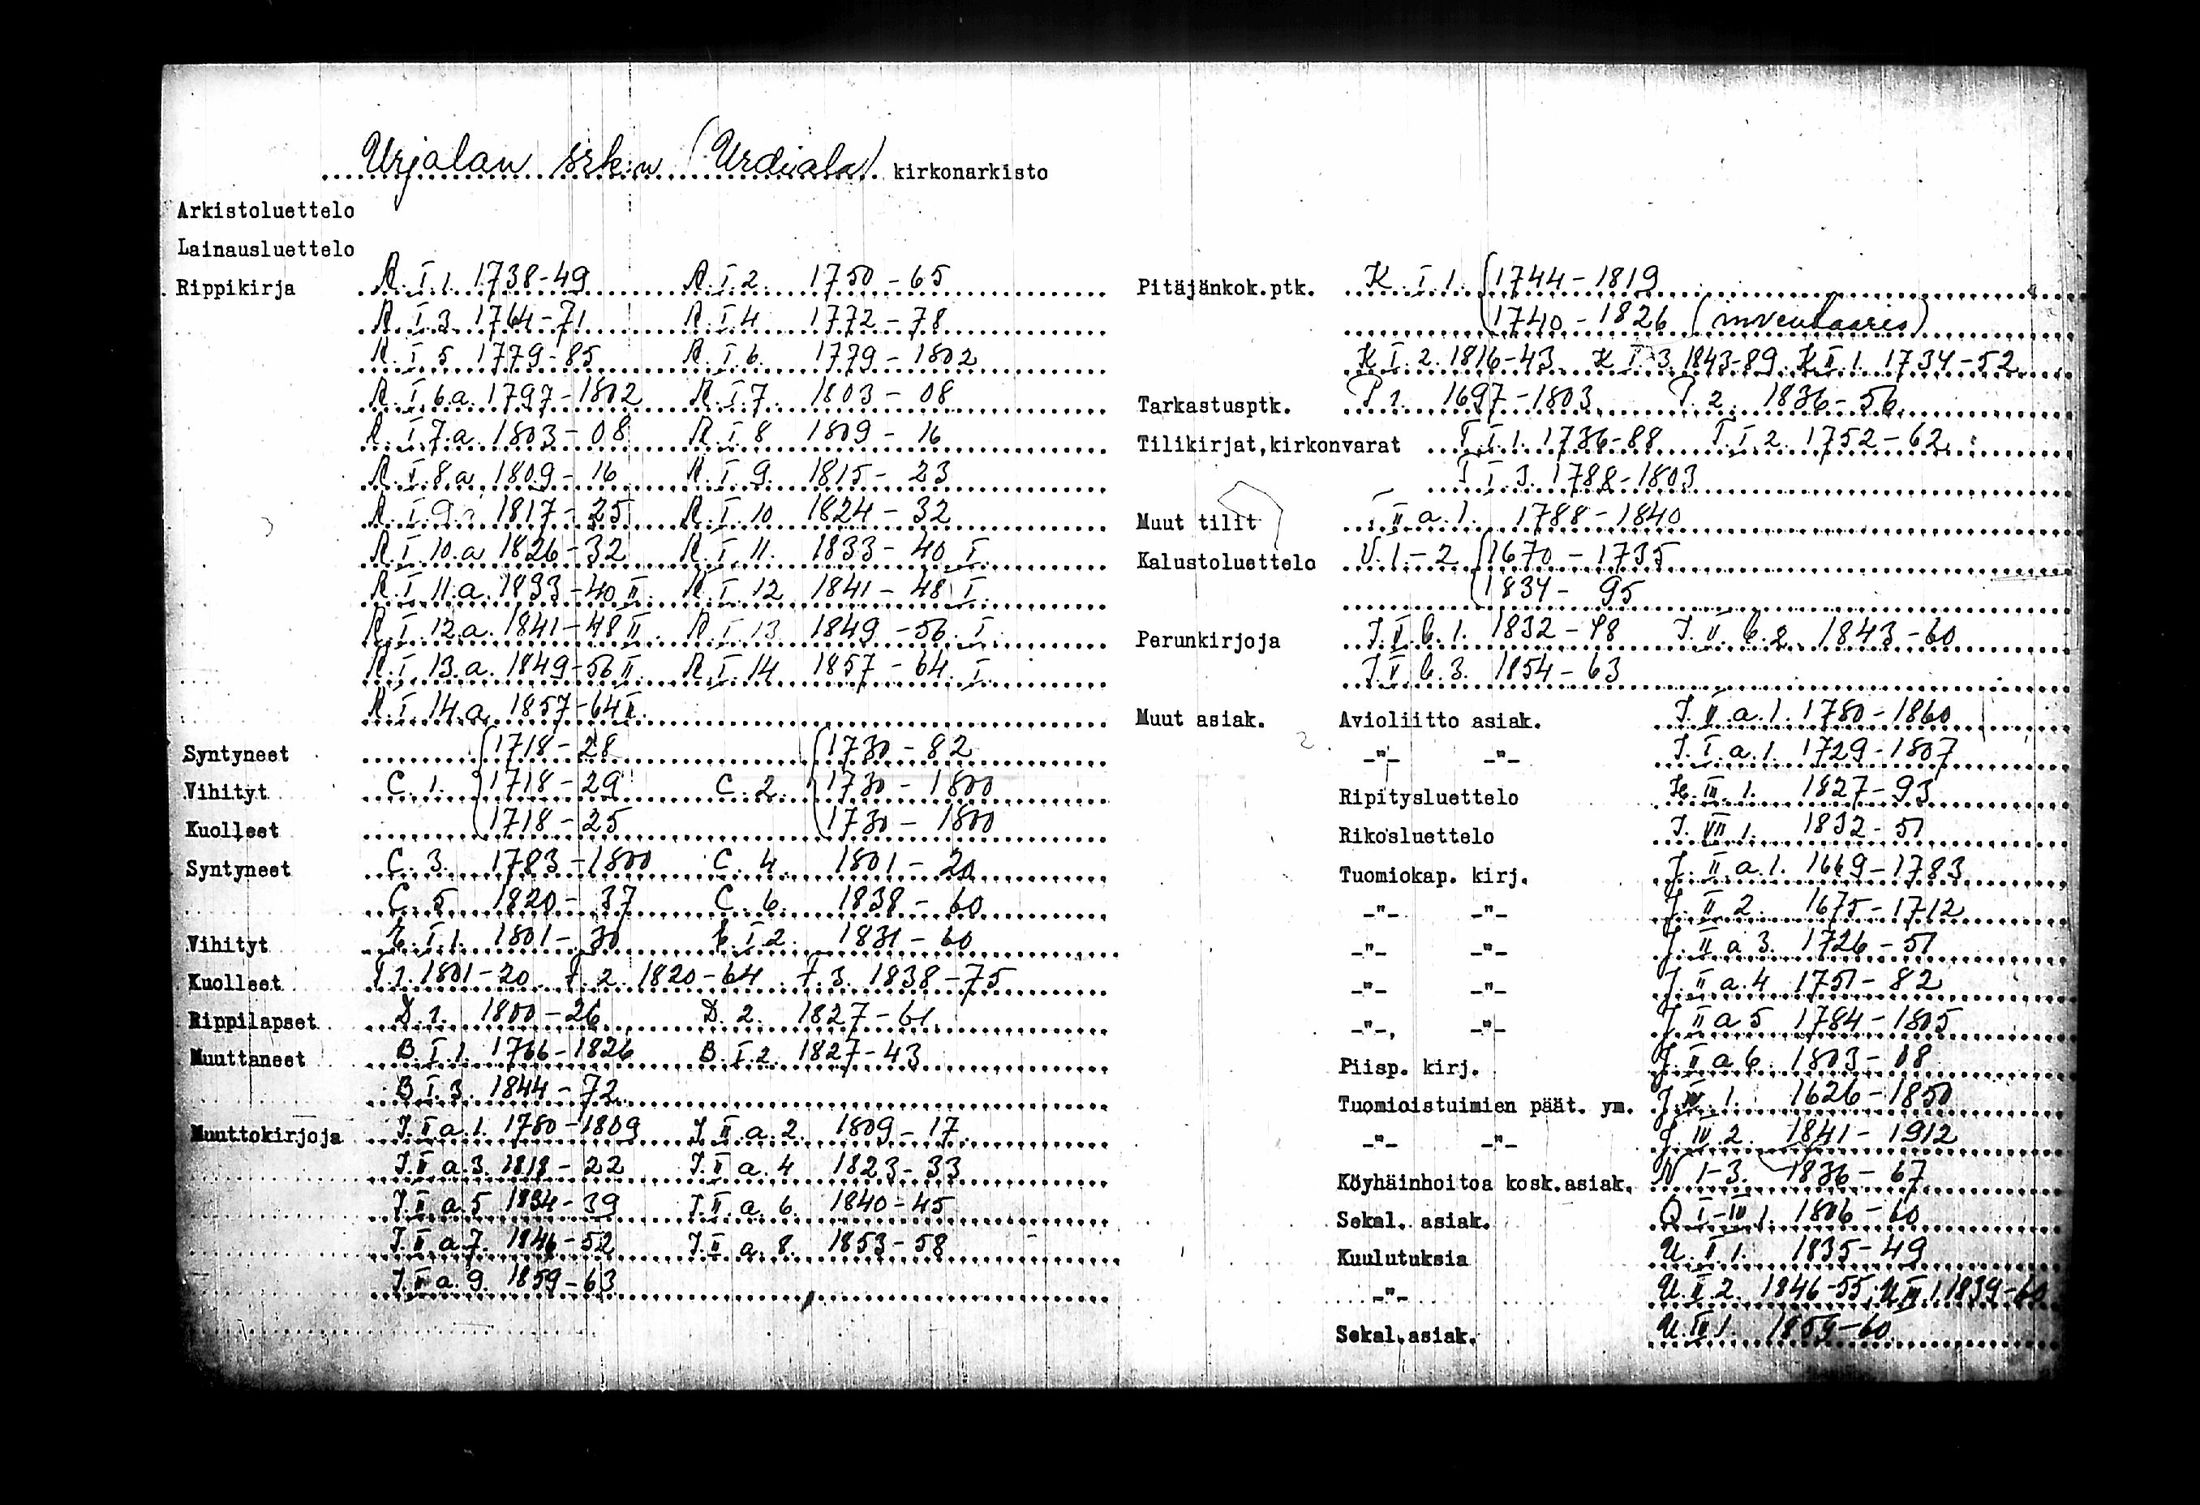 Urjalan srk:n (Urdiala) kirkonarkisto
Arkistoluettelo
Lainausluettelo
Rippikirja R. I. 1. 1738-49 R. I. 2. 1750-65
R. I. 3. 1764-71 R. I. 4 1772-78
R. I. 5 1779-85 R. I. 6. 1779-1802
R. I. 6.a. 1797-1802 R. I. 7. 1803-08
R. I. 7.a. 1803-08 R. I. 8 1809-16
R. I. 8.a 1809-16 R. I. 9. 1815-23
R. I. 9.a 1817-25 R. I. 10 1824-32
R. I. 10.a 1826-32 R. I. 11. 1833-40 I
R. I. 11.a. 1833-40 II. R. I. 12 1841-48 I.
R. I. 12.a. 1841-48 II. R. I. 13 1849-56. I.
R. I. 13.a. 1849-56 II. R. I. 14 1857-64. I.
R. I. 14.a. 1857-64 II.
Syntyneet 1718-28 1730-82
Vihityt C. 1. 1718-29 C. 2. 1730-1800
Kuolleet 1718-25 1730-1800
Syntyneet C. 3. 1783-1800 C. 4. 1801-20
C. 5 1820-37 C. 6. 1838-60
Vihityt E. I. 1. 1801-30 E. I. 2. 1831-60
Kuolleet F. 1. 1801-20 F. 2. 1820-64 F. 3. 1838-75
Rippilapset D. 1. 1800-26 D. 2. 1827-61
Muuttaneet B. I. 1. 1766-1826 B. I. 2. 1827-43
B. I. 3. 1844-72
Muuttokirjoja J. II a. 1. 1780-1809 J. II a. 2. 1809-17
J. II a. 3. 1818-22 J. II a. 4 1823-33
J. II a. 5 1834-39 J. II. a. 6. 1840-45
J. II a. 7. 1846-52 J. II a. 8. 1853-58
J. II a. 9. 1859-63
Pitäjänkok.ptk. K. I. 1. 1744-1819
1740-1826 (inventaares)
K. I. 2. 1816-43. K. I. 3. 1843-89. K. II. 1. 1734-52
Tarkastusptk. P 1. 1697-1803 P. 2. 1836-56
Tilikirjat,kirkonvarat T. I. 1. 1736-88 T. I. 2. 1752-62
T I. 3. 1788-1803
Muut tilit T II a. 1. 1788-1840
Kalustoluettelo U. 1-2 1670-1735
1834-95
Perunkirjoja J. V. b. 1. 1832-48 J. V. b. 2. 1843-60
J. V b. 3. 1854-63
Muut asiak. Avioliitto asiak. J. V. a. 1. 1780-1860
-"- -"- J. I. a. 1. 1729-1807
Ripitysluettelo K. III. 1. 1827-93
Rikosluettelo J. VII 1. 1832-51
Tuomiokap. kirj. J. II. a. 1. 1669-1783
-"- -"- J. II 2. 1675-1712
-"- -"- J. II a 3. 1726-51
-"- -"- J. II a. 4 1751-82
-"-, -"- J. II a 5 1784-1805
Piisp. kirj. J. II a 6. 1803-08
Tuomioistuimien päät. ym. J. IV. 1. 1626-1850
-"- -"- J. IV. 2. 1841-1912
Köyhäinhoitoa kosk.asiak. N 1-3. 1836-67
Sekal. asiak. Q I-IV 1. 1806-60
Kuulutuksia U. II 1. 1835-49
-"- U. II. 2. 1846-55, U III. 1. 1839-60
Sekal.asiak. U. IV 1. 1859-60